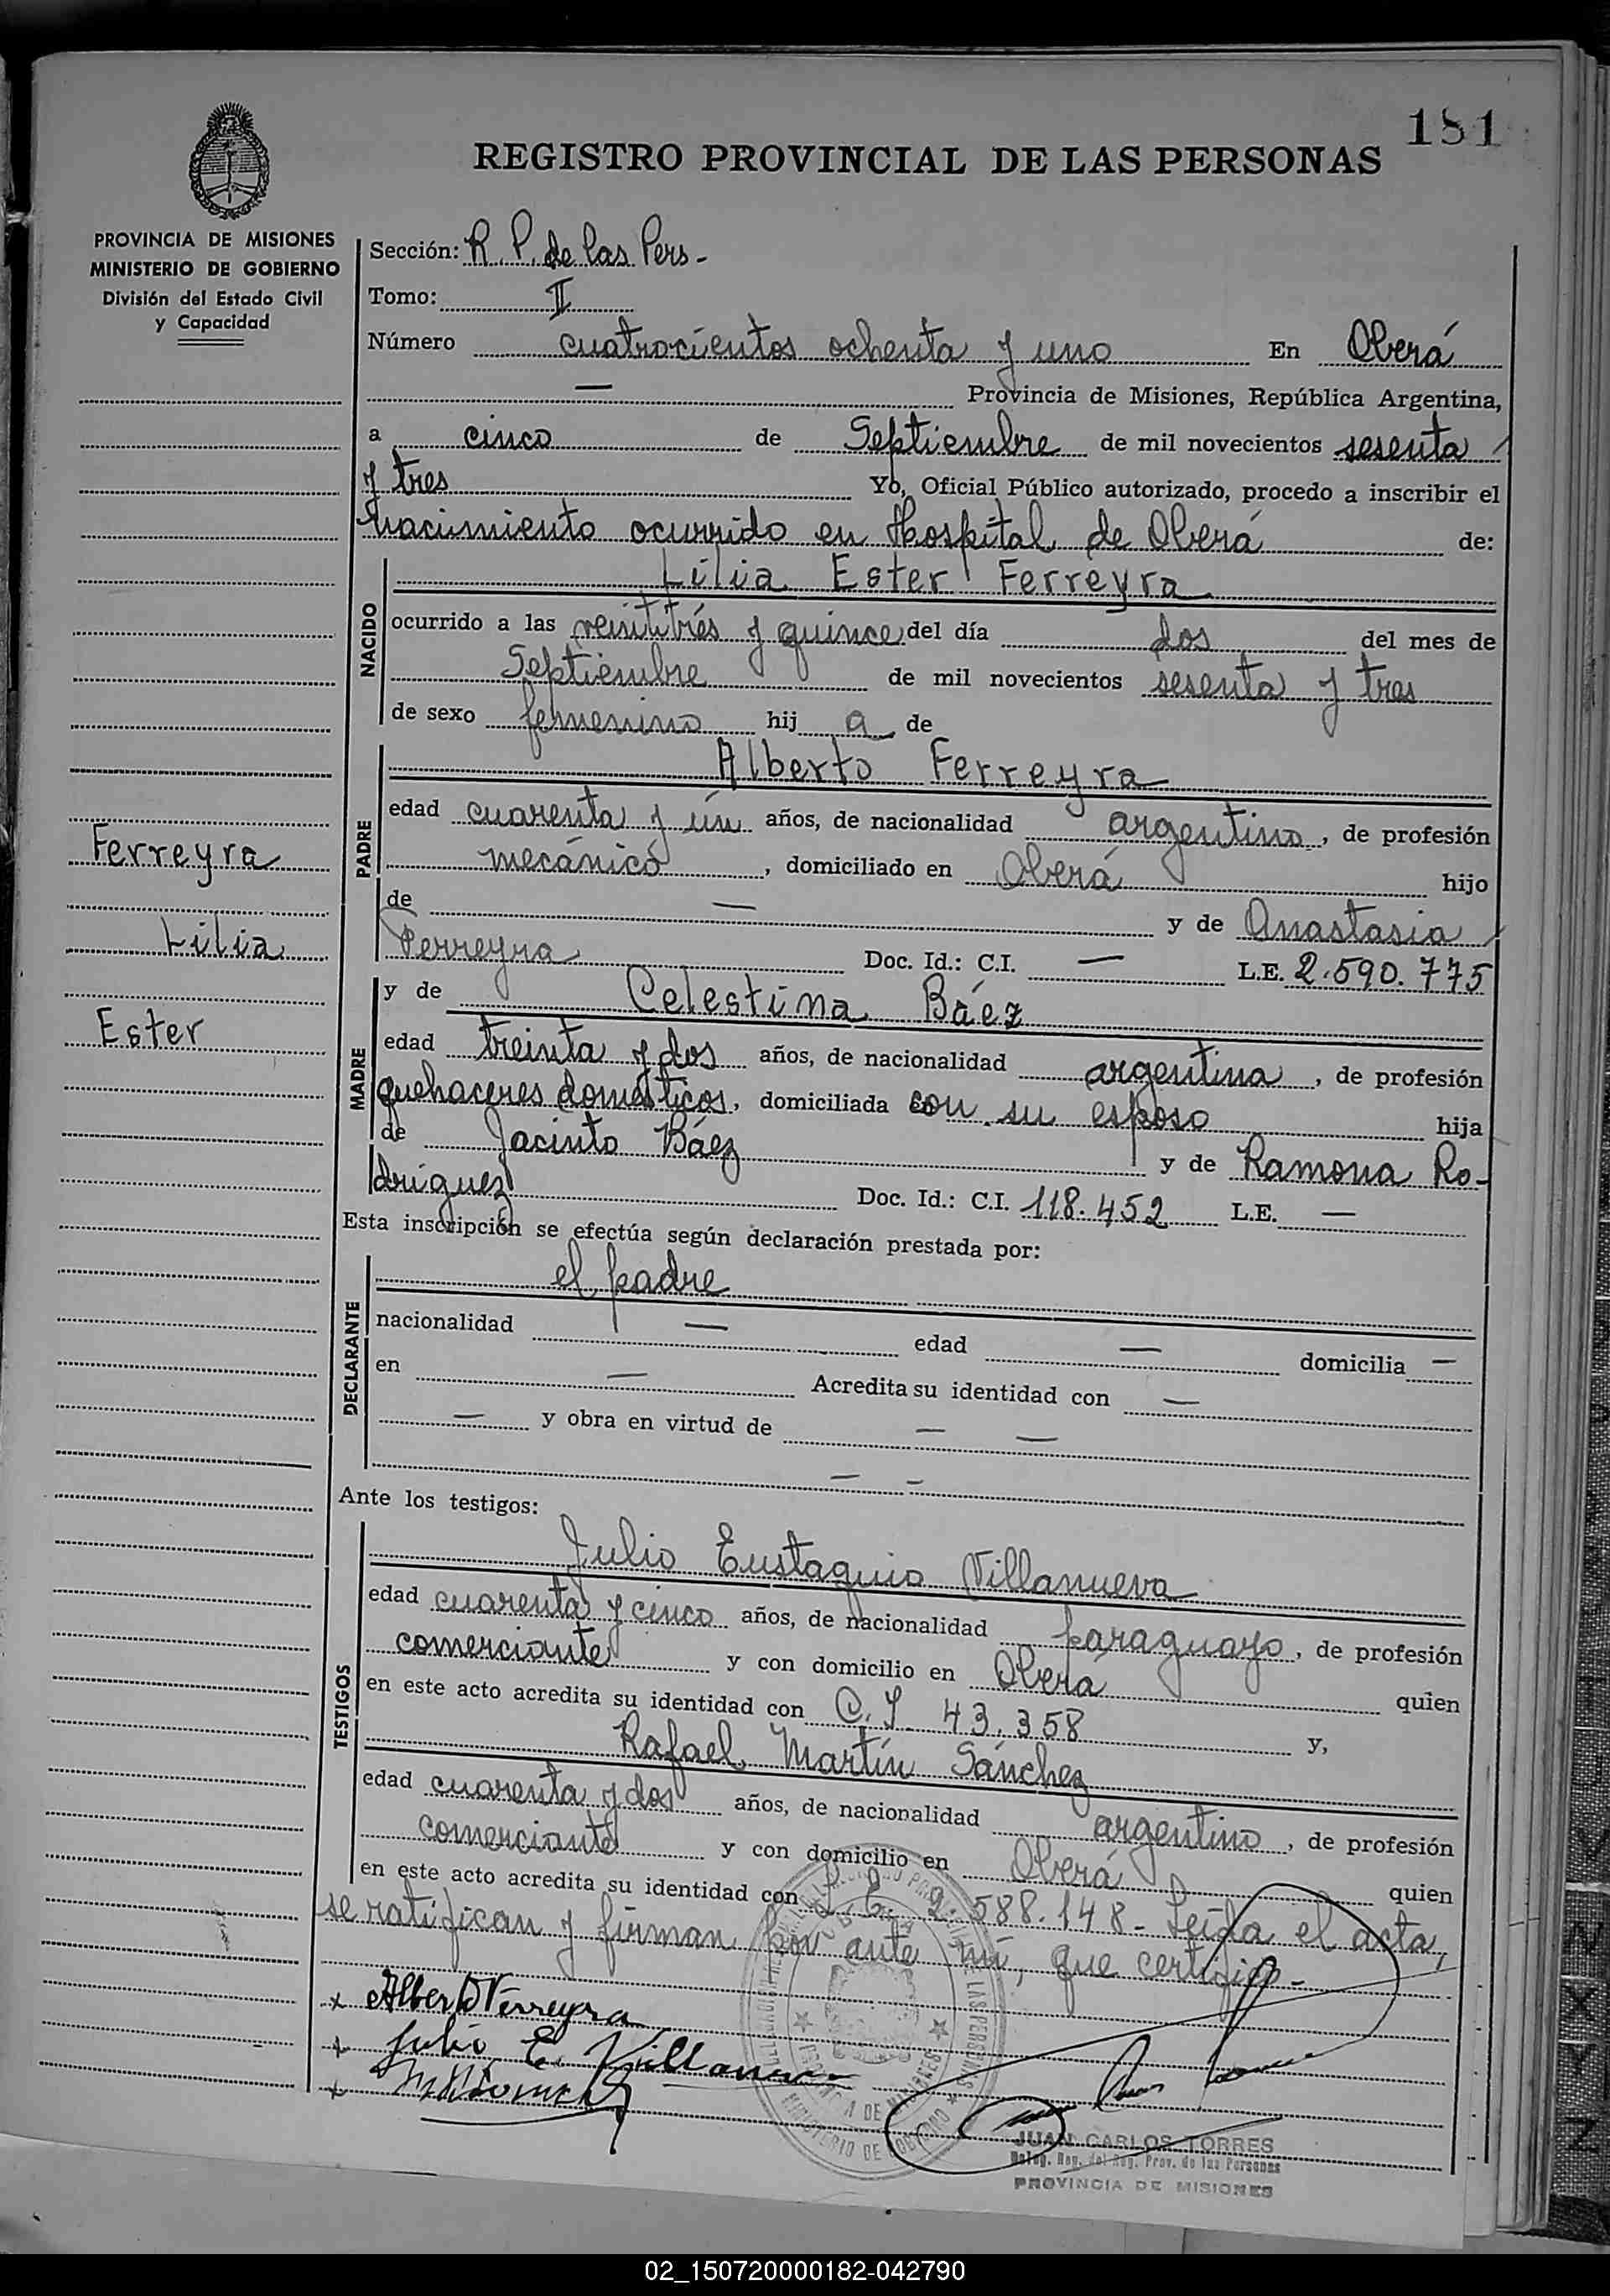 181
REGISTRO PROVINCIAL DE LAS PERSONAS
PROVINCIA DE MISIONES
MINISTERIO DE GOBIERNO
División del Estado Civil
y Capacidad
Sección: R. P. de las Pers.-
Tomo: II
Número cuatrocientos ochenta y uno En Oberá
— Provincia de Misiones, República Argentina,
a cinco de Septiembre de mil novecientos sesenta
y tres Yo, Oficial Público autorizado, procedo a inscribir el
nacimiento ocurrido en Hospital de Oberá de:
NACIDO
Lilia Ester Ferreyra
ocurrido a las veintitrés y quince del día dos del mes de
Septiembre de mil novecientos sesenta y tres
de sexo femenino hij a de
PADRE
Alberto Ferreyra
edad cuarenta y ún años, de nacionalidad argentino, de profesión
mecánico, domiciliado en Oberá hijo
de — y de Anastasia
Ferreyra Doc. Id.: C.I. — L.E. 2.590.775
Ferreyra
Lilia
Ester
MADRE
y de Celestina Báez
edad treinta y dos años, de nacionalidad argentina, de profesión
quehaceres domésticos, domiciliada con su esposo hija
de Jacinto Báez y de Ramona Ro-
dríguez Doc. Id.: C.I. 118.452 L.E. —
Esta inscripción se efectúa según declaración prestada por:
DECLARANTE
el padre
nacionalidad — edad — domicilia —
en — Acredita su identidad con —
— y obra en virtud de — —
— —
Ante los testigos:
TESTIGOS
Julio Eustaquio Villanueva
edad cuarenta y cinco años, de nacionalidad paraguayo, de profesión
comerciante y con domicilio en Oberá quien
en este acto acredita su identidad con C.I. 43.358 y,
Rafael Martín Sánchez
edad cuarenta y dos años, de nacionalidad argentino, de profesión
comerciante y con domicilio en Oberá quien
en este acto acredita su identidad con L.E. 2.588.148.- Leída el acta,
se ratifican y firman por ante mí, que certifico.-
x Alberto Ferreyra
x Julio E. Villanueva
x
JUAN CARLOS TORRES
Reg. Prov. de las Personas
PROVINCIA DE MISIONES
02_150720000182-042790